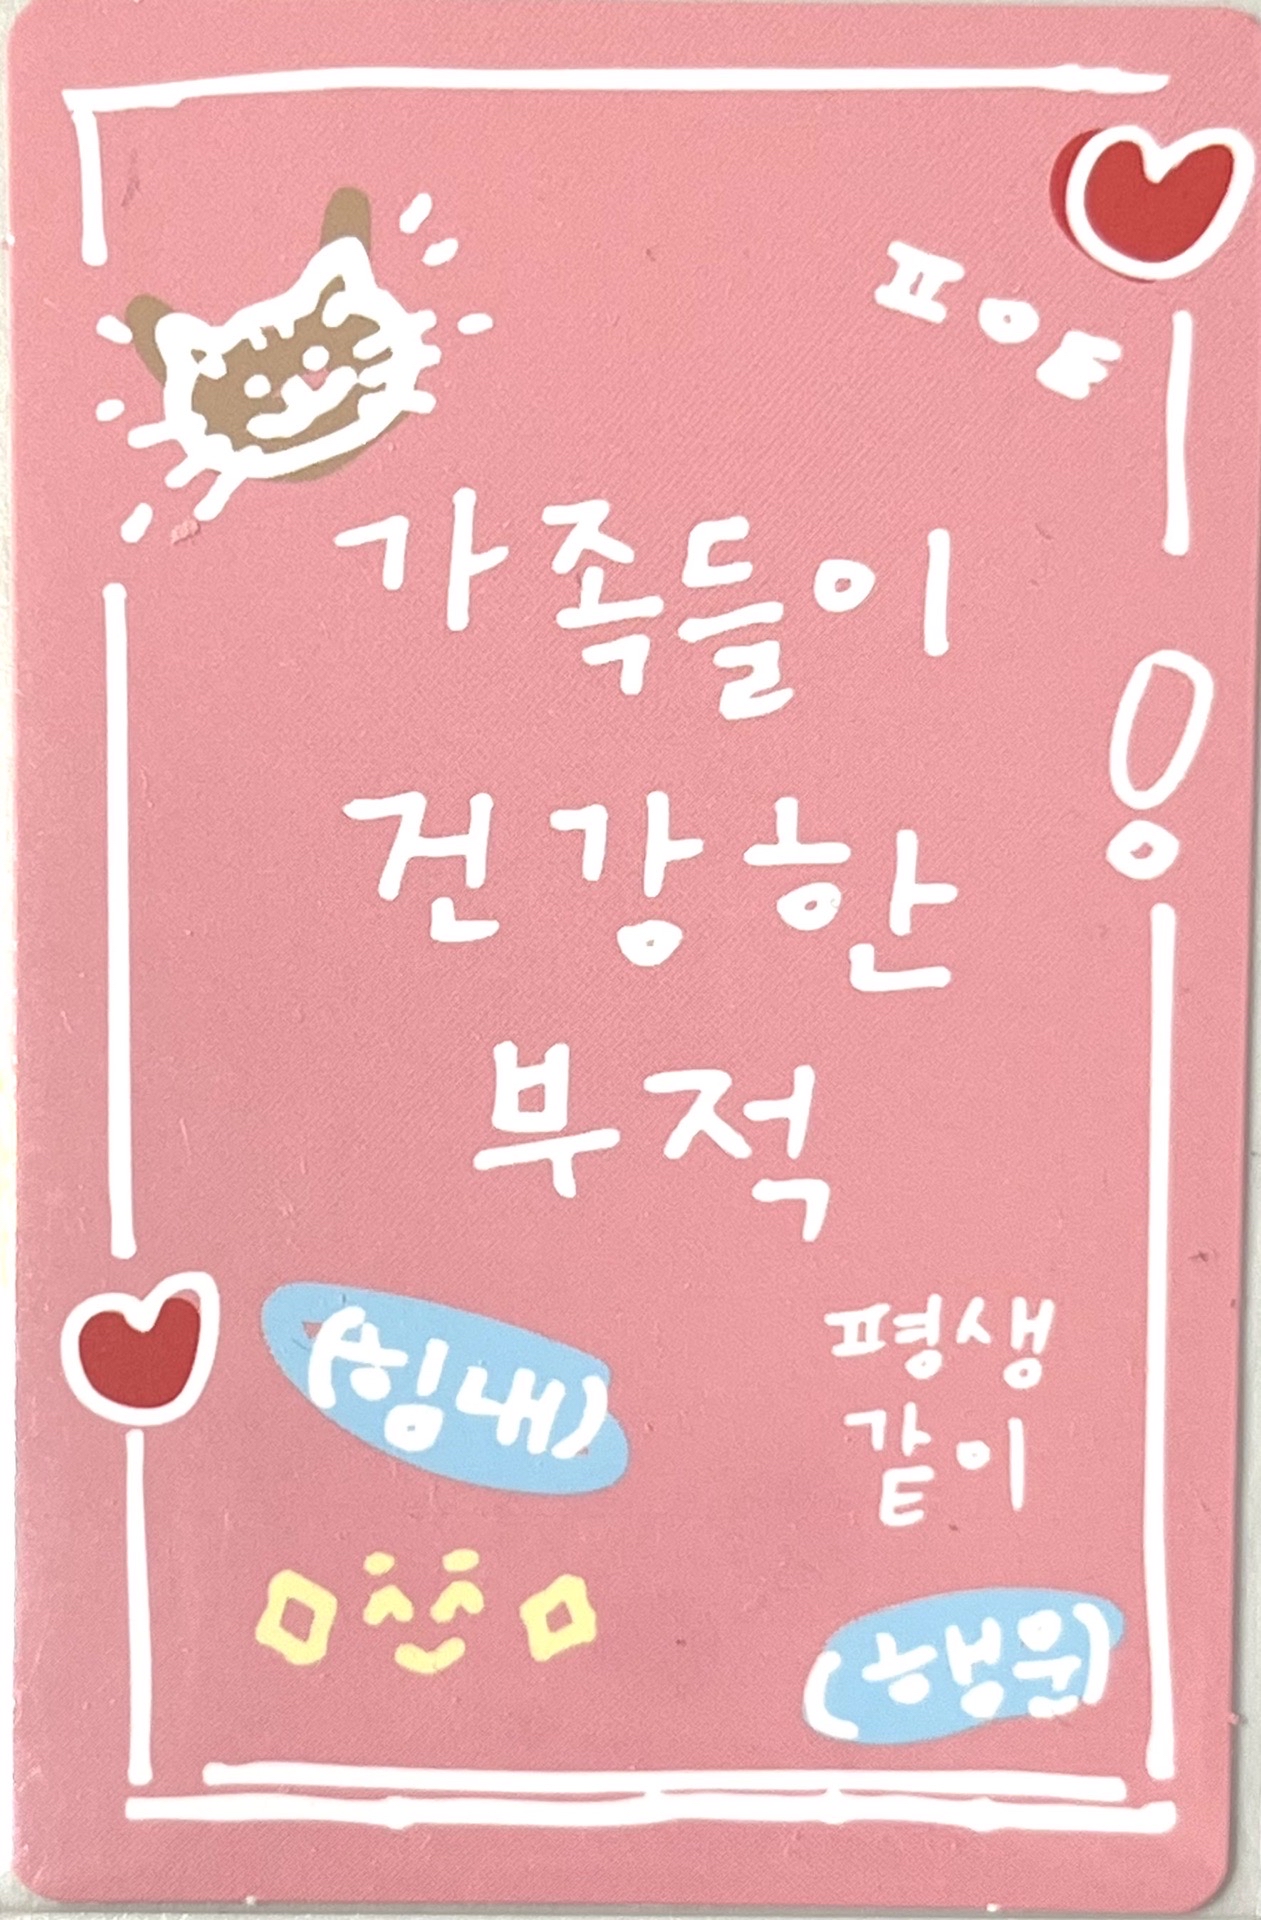 ㅍㅇㅌ
가족들이
건강한
부적
(힘내)
평생
같이
(행운)